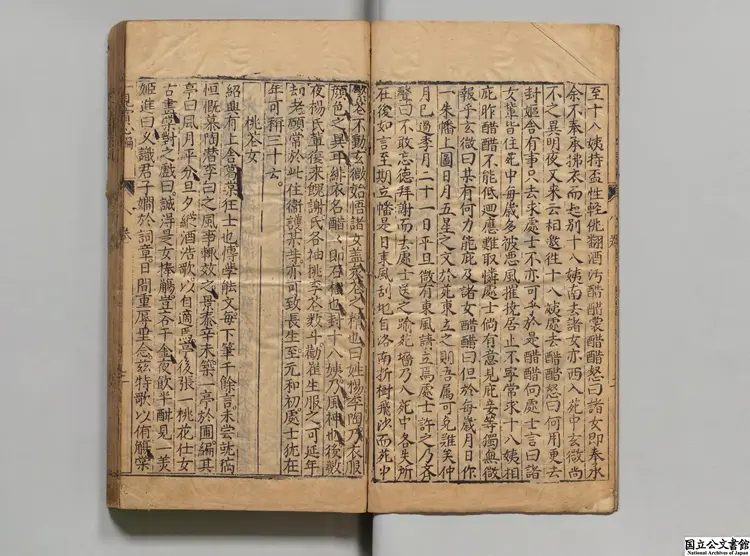 至十八姨持盃性輕佻翻酒汚醋醋裳醋醋怒曰諸女即奉求
余不奉求拂衣而起別十八姨南去諸女亦西入苑中玄微尚
不之異明夜又來云相邀往十八姨處去醋醋怒曰何用更去
封嫗舎有事只去求處士不亦可乎於是醋醋向處士言曰諸
女輩皆住苑中每歳多被悪風摧撓居止不寧常求十八姨相
庇昨醋醋不能低迴應難取憐處士倘有意見庇妾等獨無微
報乎玄微曰某有何力能庇及諸女醋醋曰但於每歳月日作
一朱幡上圖日月五星之文於苑東立之則吾属可免難矣仲
月已過季月二十一日平旦微有東風請立焉處士許之乃齊
聲曰不敢忘德拜謝而去處士送之踰苑墻乃入苑中各失所
在後如言至期立幡是日東風刮地自洛南折樹飛沙而苑中
繁花不動玄微始悟諸女盖衆花之精也曰姓楊李陶乃衣服
顔色之異耳緋衣名醋醋即石榴也封十八姨乃風神也後數
夜楊氏輩復來媿謝氏各袖桃李花數斗勸崔生服之可延年
却老願常於此住衛護某等亦可致長生至元和初處士犹在
年可稱三十云
桃花女
紹興有上舎葛棠狂士也博學能文每下筆千餘言未嘗就稿
恒慨慕陶潜李白之風事輙效之景泰辛未築一亭於圃編其
亭曰風月平分旦夕縱酒浩歌以自適焉亭後張一桃花仕女
古畫棠對之戯曰誠得是女捧觴豈吝千金夜飲半酣見一羙
姬進曰久識君子嫺於詞章日間重辱垂念玆特歌以侑觴棠
八巻
国立公文書館
National Archives of Japan